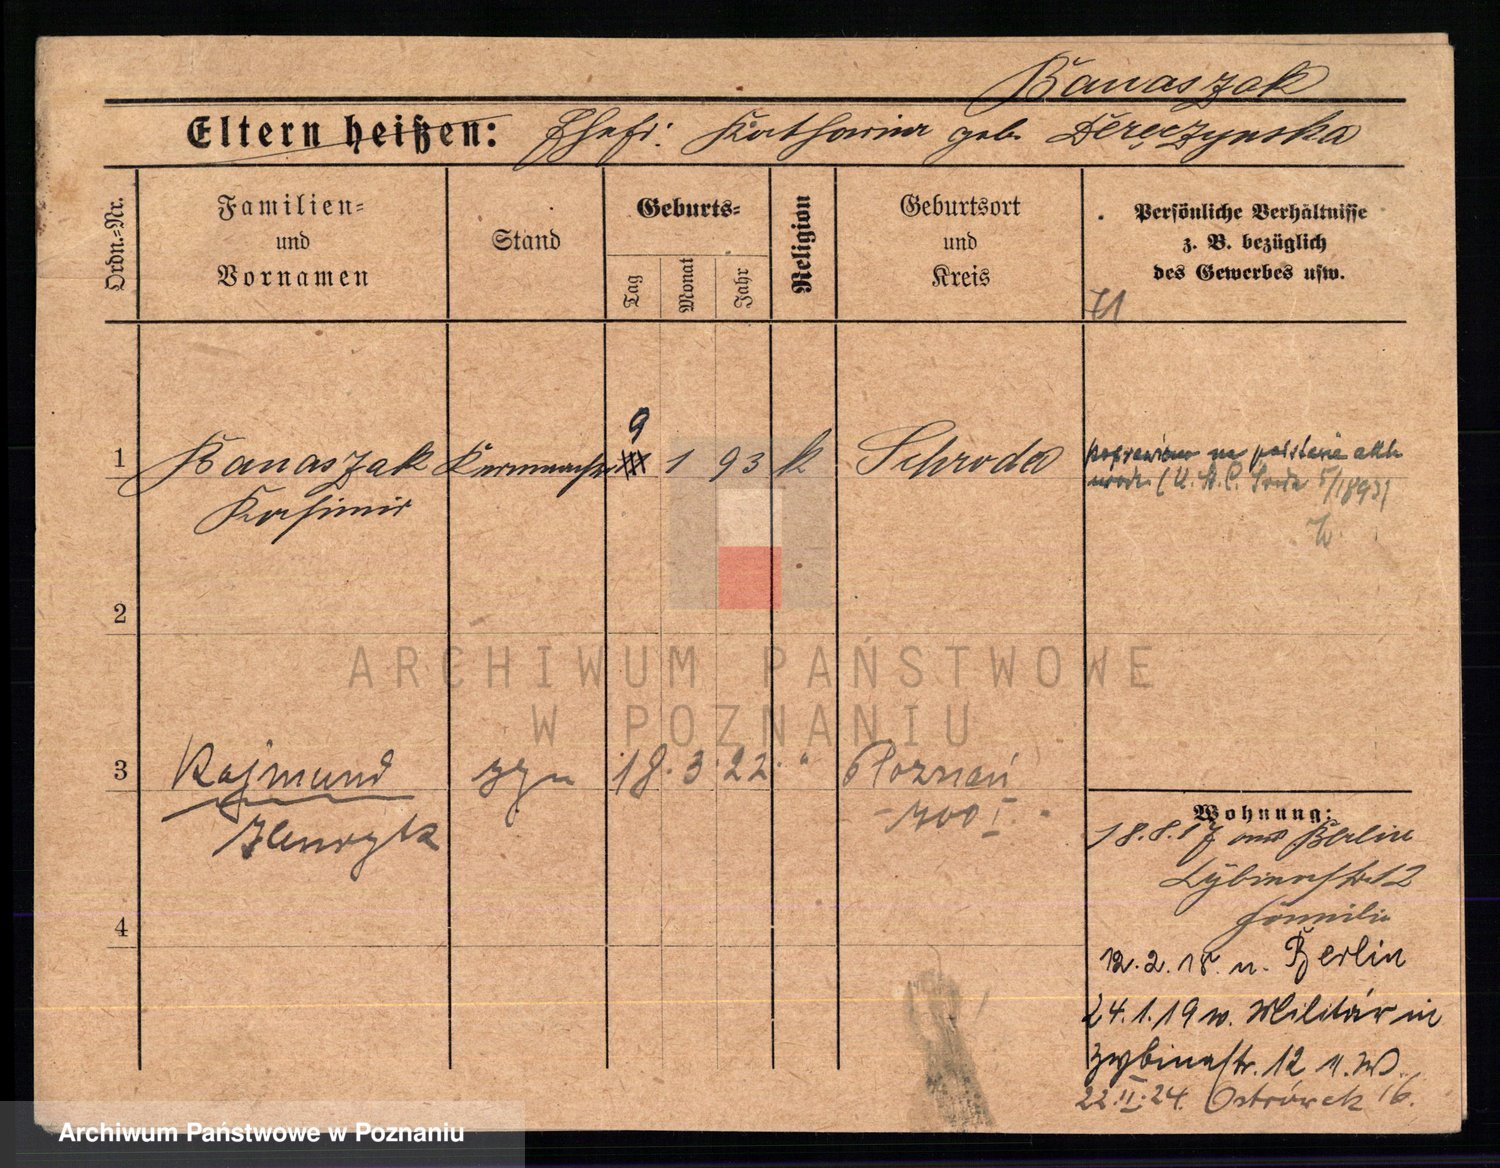 Banaszak
Eltern heißen: Ehefr. Katharina geb. Deręczynska
Ordn.-Nr.
Familien-
und
Vornamen
Stand
Geburts-
Tag
Monat
Jahr
Religion
Geburtsort
und
Kreis
Persönliche Verhältnisse
z. B. bezüglich
des Gewerbes usw.
9
1 Banaszak 1 93 k Schroda
Kasimir
poprawiono na podstawie aktu
urodz. (U. S. C. Środa 5/1893)
2
ARCHIWUM PAŃSTWOWE
W POZNANIU
3 Rajmund syn 18. 3. 22. " Poznań
Henryk
- 700 I. -
4
Wohnung:
18.8.17 aus Berlin
12
Familie
12.2.18. n. Berlin
24.1.19 v. Militär in
Zybinastr. 12 u. W.
22.II.24. Ostrówek 16.
Archiwum Państwowe w Poznaniu